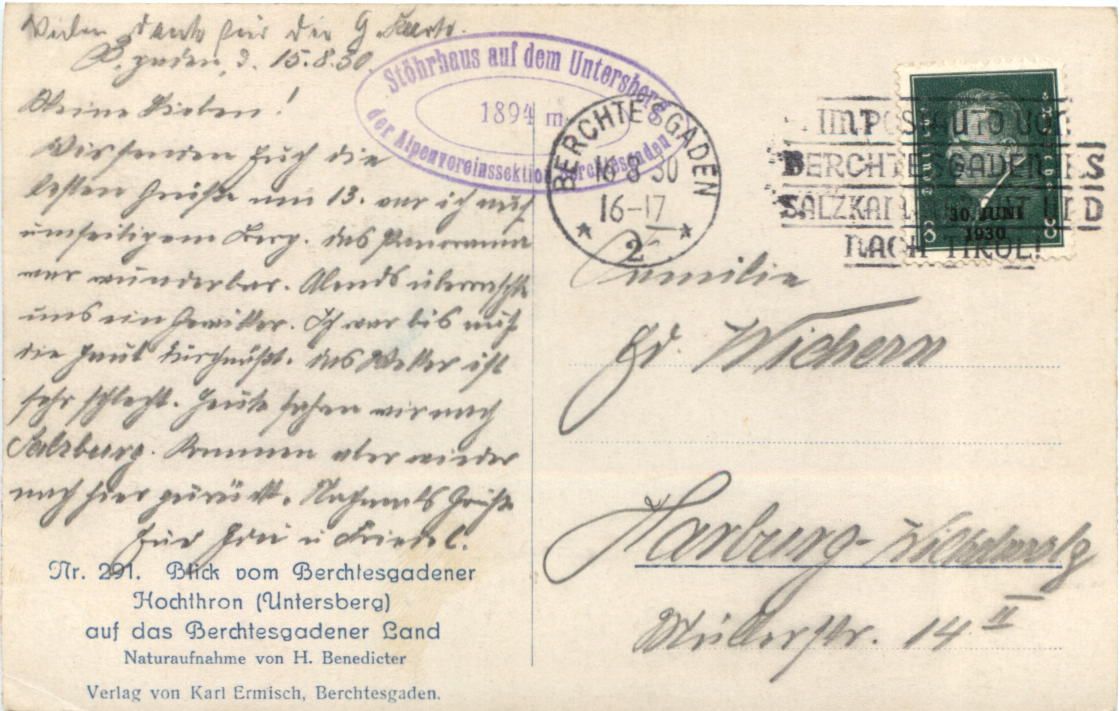 Vielen Dank für die G. Karte.
B.gaden, d. 15.8.30.
Meine Lieben!
Wir senden Euch die
besten Grüße. Am 13. war ich auf
umseitigem Berg. Das Panorama
war wunderbar. Abends überraschte
uns ein Gewitter. Ich war bis auf
die Haut durchnäßt. Das Wetter ist
sehr schlecht. Heute fahren wir nach
Salzburg. Kommen aber wieder
nach hier zurück. Nochmals Grüße
u Friedel.
Nr. 291. Blick vom Berchtesgadener
Hochthron (Untersberg)
auf das Berchtesgadener Land
Naturaufnahme von H. Benedicter
Verlag von Karl Ermisch, Berchtesgaden.
Stöhrhaus auf dem Untersberg
1894 m
der Alpenvereinssektion Berchtesgaden
BERCHTESGADEN
16 8 30
16-17
* 2 *
IM POSTAUTO VON
BERCHTESGADEN INS
SALZKAMMERGUT UND
NACH TIROL!
30. JUNI
1930
8 8
Familie
Gd. Wichern
Harburg-Wilhelmsbg
Müllerstr. 14 II